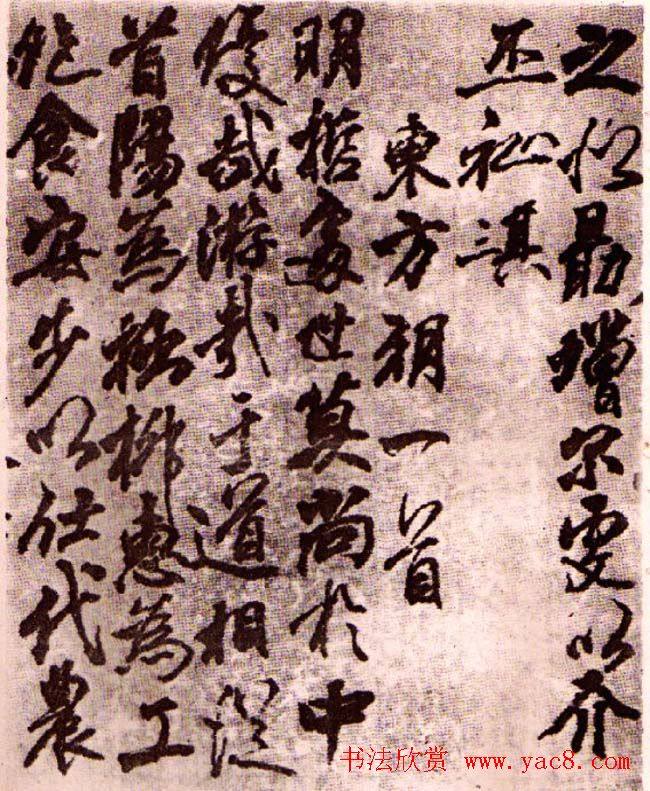 之似勗增尔虔以介
丕祉
東方朔一首
明哲處世莫尚於中
優哉游哉于道相從
首陽為拙柳惠為工
飽食安步以仕代農
书法欣赏 www.yac8.com